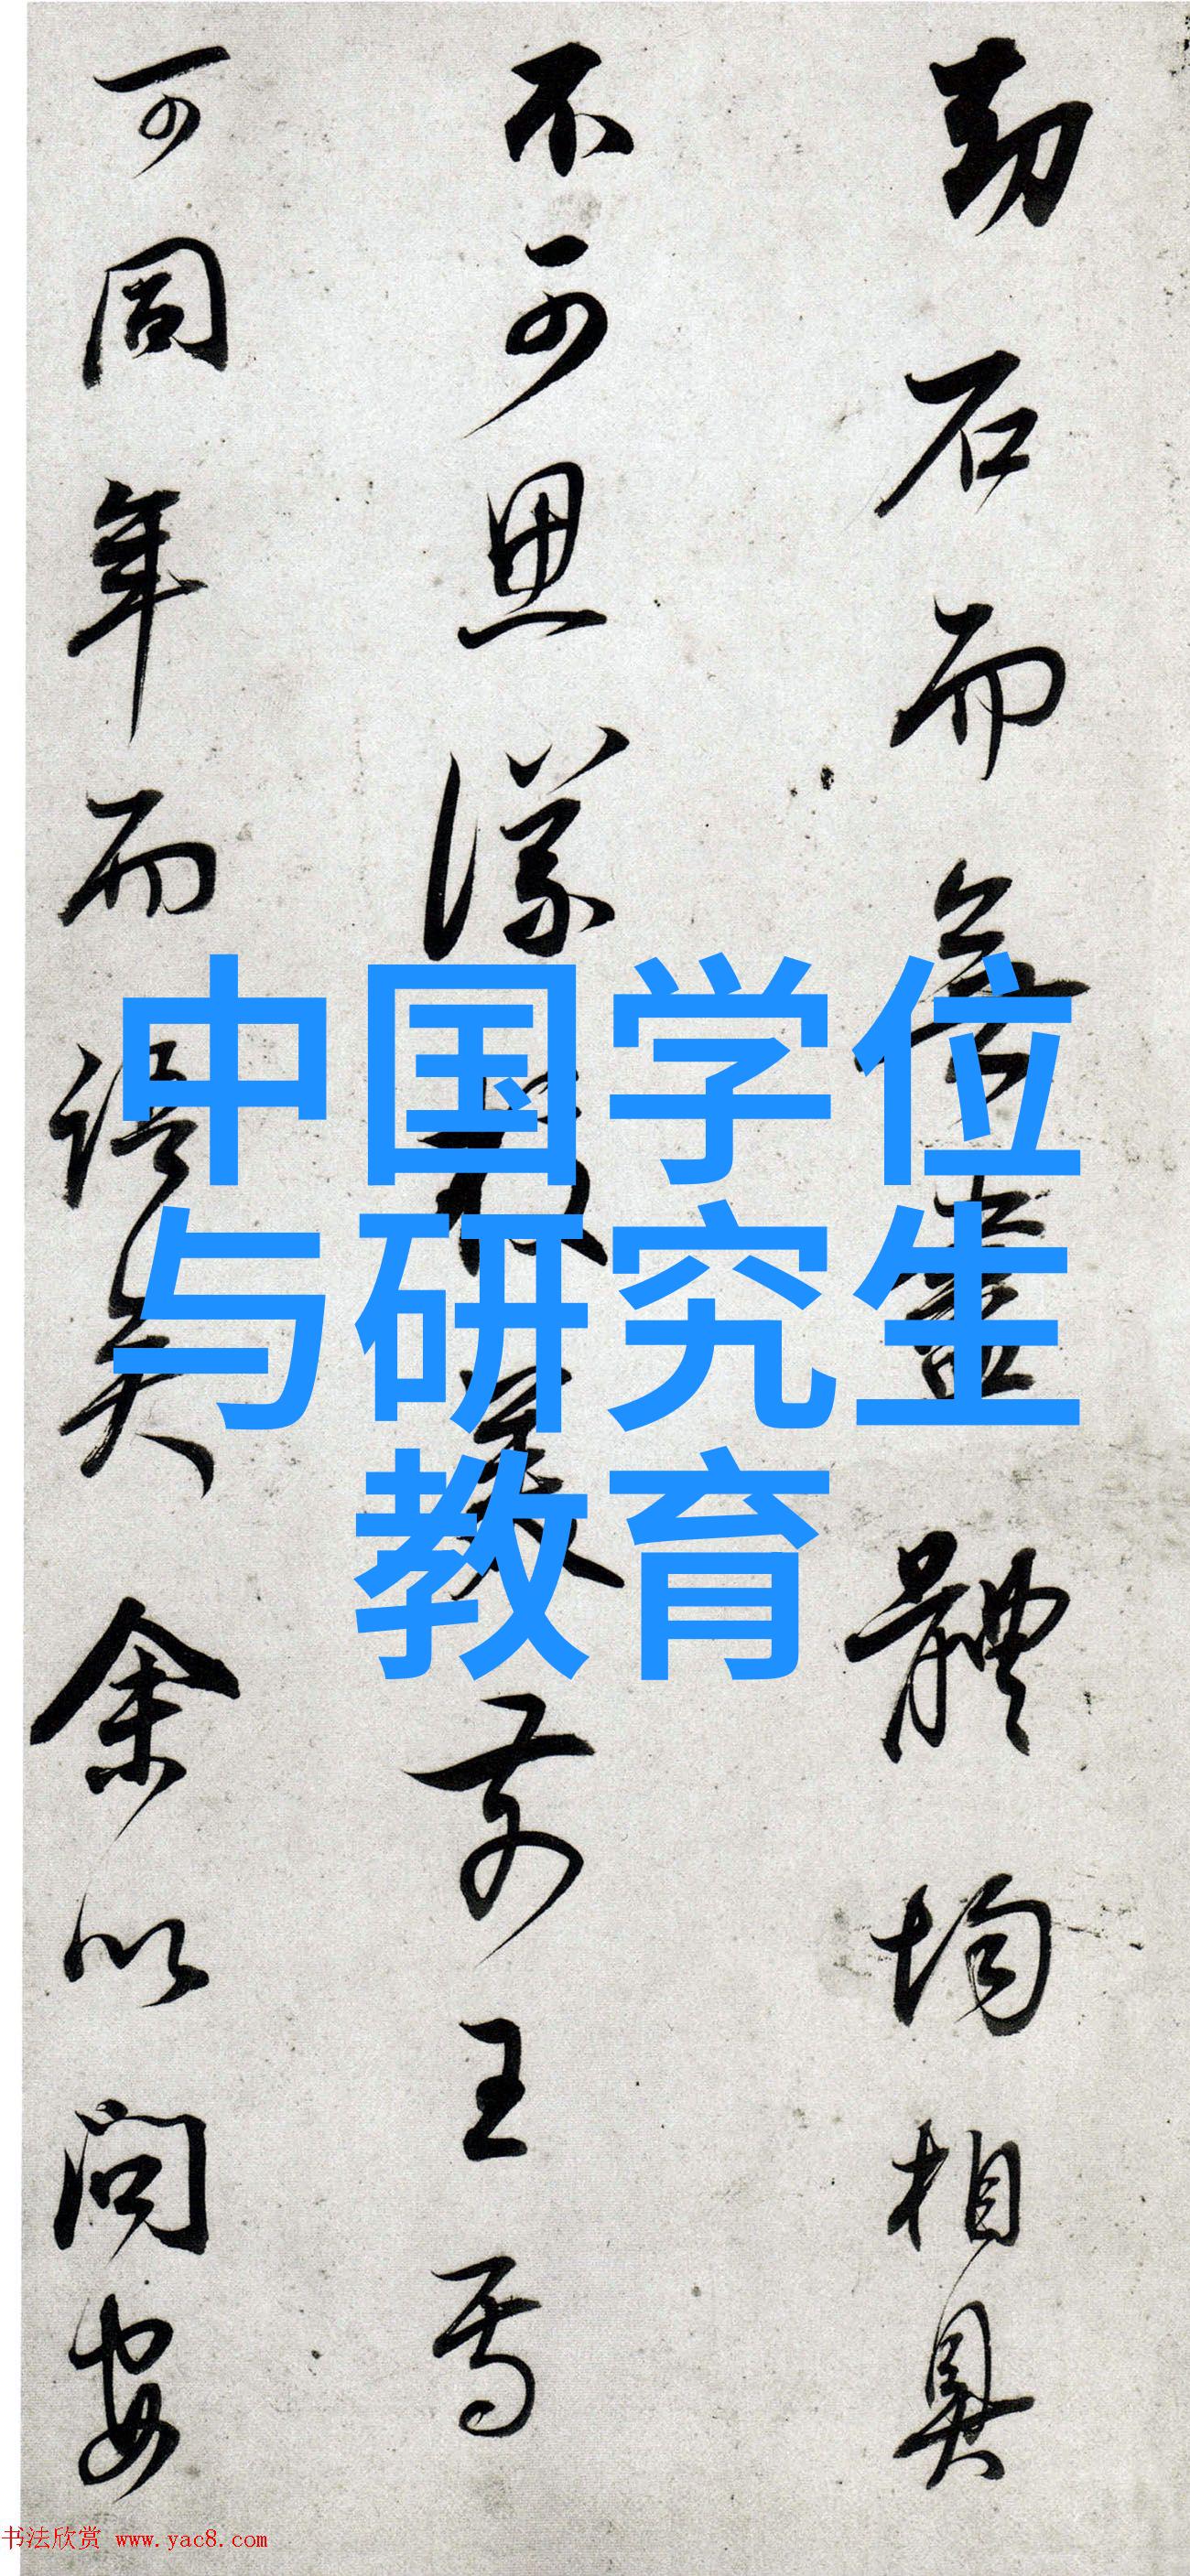 劫石而無盡體均相具
不可思議美前王焉
可同年而語矣余以問安
中国学位
与研究生
教育
书法欣赏 www.yac8.com